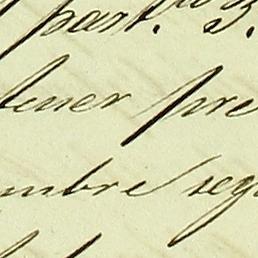 part. 3.
tener pre
mbre seg